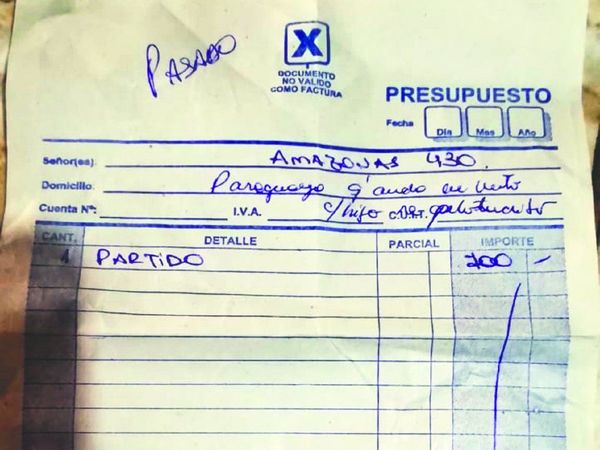 PASADO
X
DOCUMENTO
NO VALIDO
COMO FACTURA
PRESUPUESTO
Fecha Día Mes Año
Señor(es): AMAZONAS 430.
Domicilio: Paraguayo q'anda en
Cuenta Nº: I.V.A. c/hijo
CANT. DETALLE PARCIAL IMPORTE
1 PARTIDO 700 -